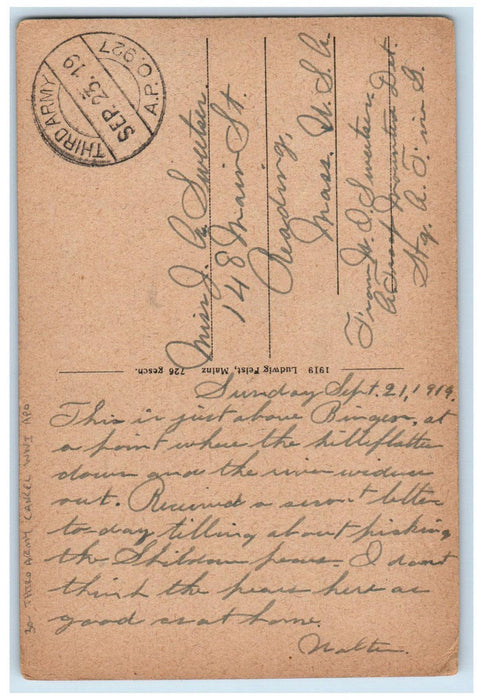 THIRD ARMY
SEP 25. 19
A.P.O. 927
Miss J. A. Sweetser
148 Main St.
Reading,
Mass. U.S.A.
From W. D. Sweetser
Mounted Det.
Hq. A. F. in G.
726 gesch. 1919 Ludwig Felst, Mainz
Sunday Sept. 21, 1919.
This is just above Bingen, at
a point where the hills flatten
down and the river widens
out. Received a letter
to day telling about picking
the Sheldon pears. I don't
think the pears here as
good as at home.
Walter.
30- THIRD ARMY CANCEL WWI APO